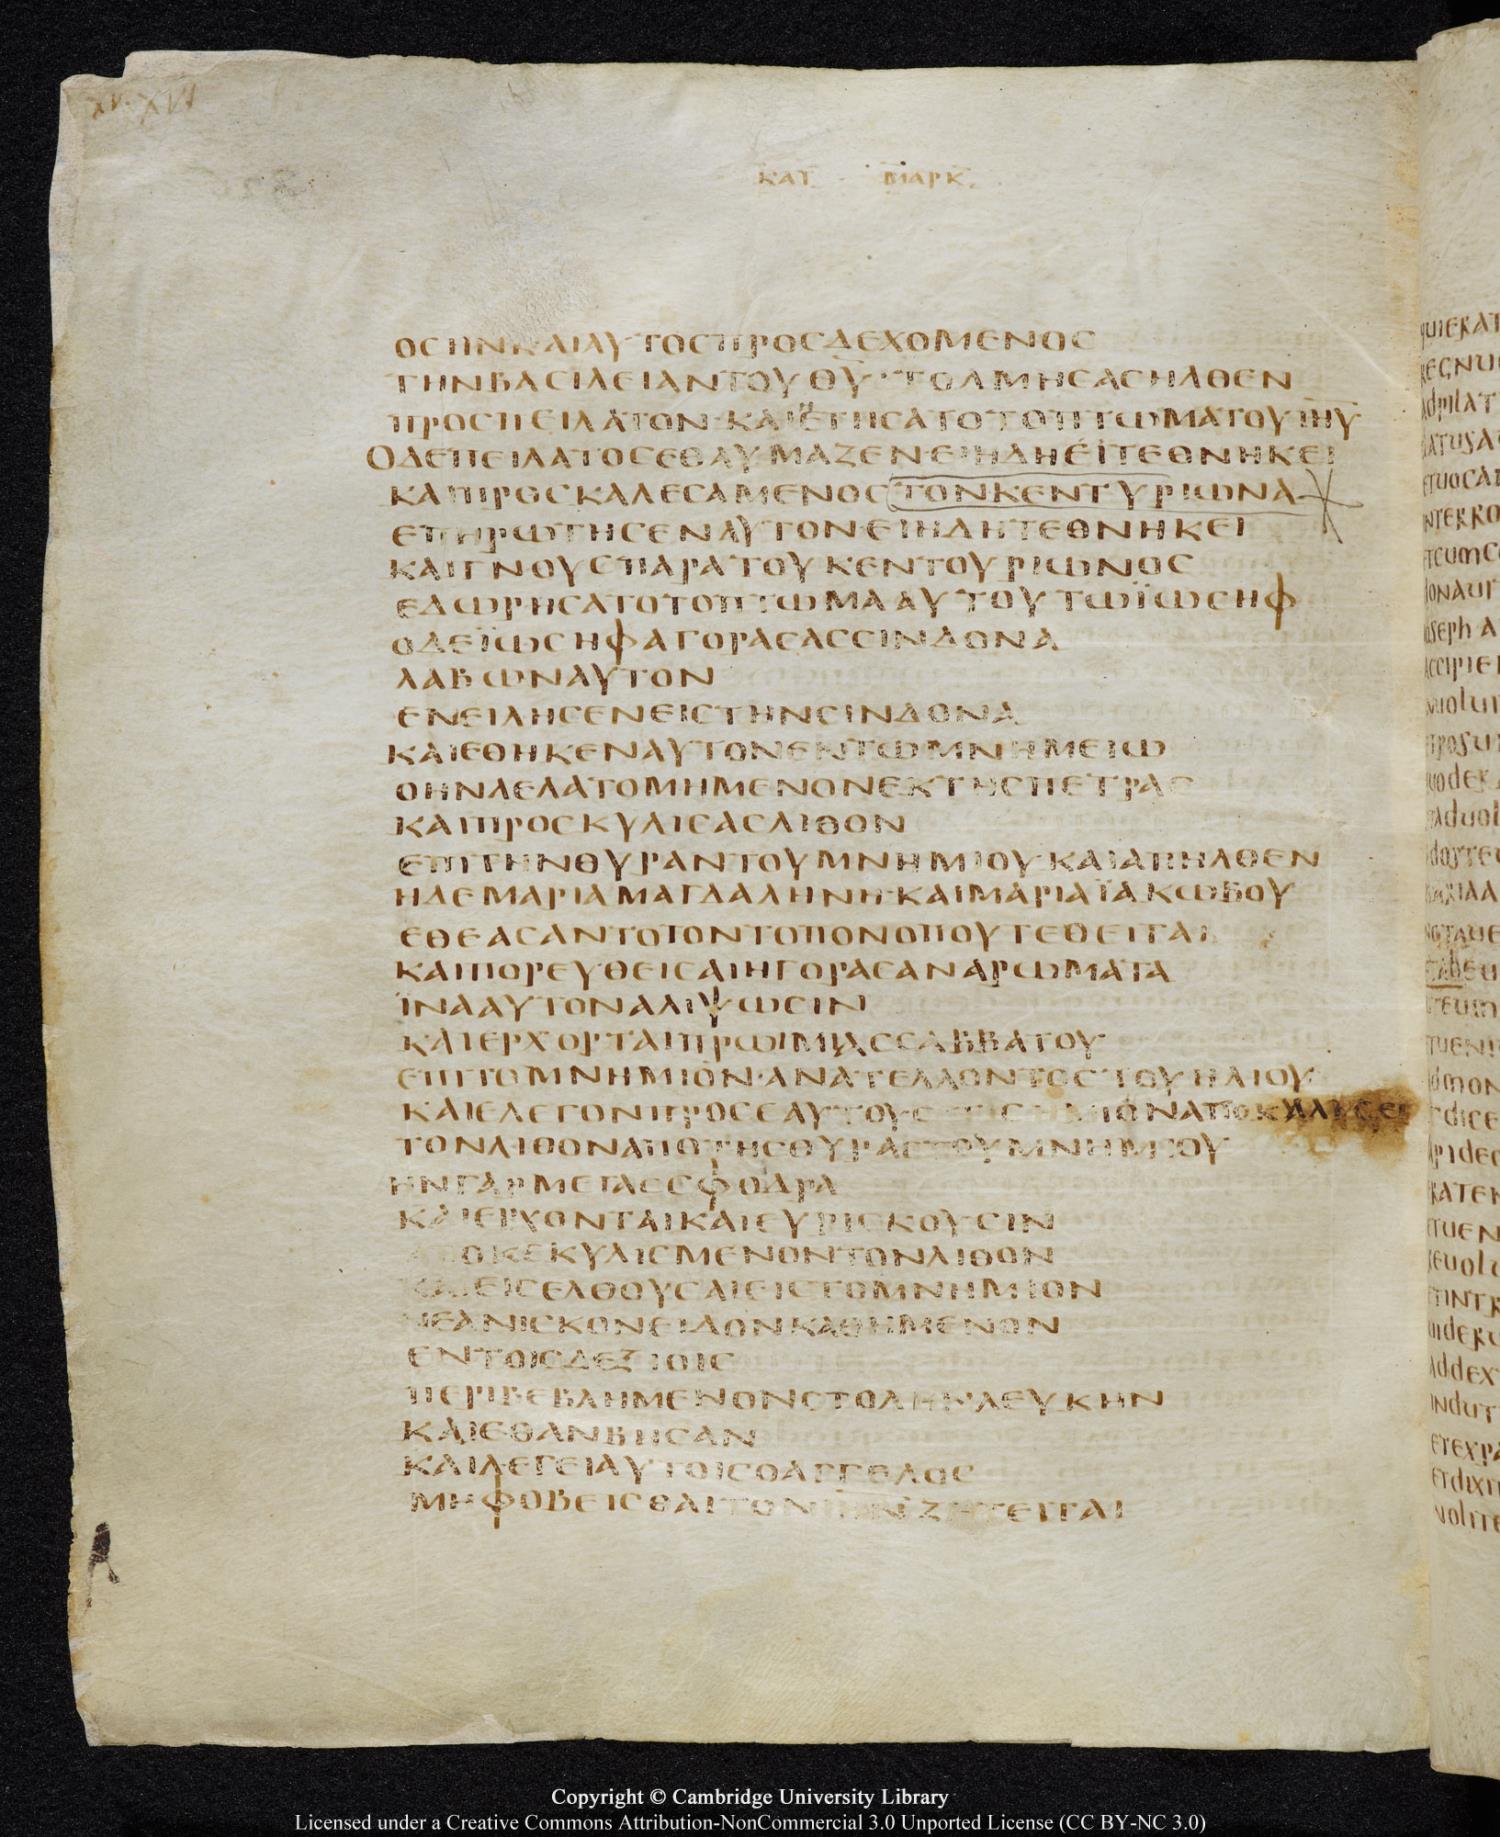 XV. XVI
ΚΑΤ ΜΑΡΚ
ΟСΗΝΚΑΙΑΥΤΟСΠΡΟСΔΕΧΟΜΕΝΟС
ΤΗΝΒΑСΙΛΕΙΑΝΤΟΥΘ̅Υ̅·ΤΟΛΜΗСΑСΗΛΘΕΝ
ΠΡΟСΠΕΙΛΑΤΟΝ·ΚΑΙΕΤΗСΑΤΟΤΟΠΤΩΜΑΤΟΥΙ̅Η̅Υ̅
ΟΔΕΠΕΙΛΑΤΟСΕΘΑΥΜΑΖΕΝ·ΕΙΗΔΗΕΙΤΕΘΝΗΚΕΙ
ΚΑΙΠΡΟСΚΑΛΕСΑΜΕΝΟСΤΟΝΚΕΝΤΥΡΙΩΝΑ
ΕΠΗΡΩΤΗСΕΝΑΥΤΟΝ·ΕΙΗΔΗΤΕΘΝΗΚΕΙ
ΚΑΙΓΝΟΥСΠΑΡΑΤΟΥΚΕΝΤΟΥΡΙΩΝΟС
ΕΔΩΡΗСΑΤΟΤΟΠΤΩΜΑΑΥΤΟΥΤΩΪΩСΗΦ
ΟΔΕΪΩСΗΦΑΓΟΡΑСΑССΙΝΔΟΝΑ
ΛΑΒΩΝΑΥΤΟΝ
ΕΝΕΙΛΗСΕΝΕΙСΤΗΝСΙΝΔΟΝΑ
ΚΑΙΕΘΗΚΕΝΑΥΤΟΝΕΝΤΩΜΝΗΜΕΙΩ
ΟΗΝΛΕΛΑΤΟΜΗΜΕΝΟΝΕΚΤΗСΠΕΤΡΑС
ΚΑΙΠΡΟСΚΥΛΙСΑСΛΙΘΟΝ
ΕΠΙΤΗΝΘΥΡΑΝΤΟΥΜΝΗΜΙΟΥ·ΚΑΙΑΠΗΛΘΕΝ
ΗΔΕΜΑΡΙΑΜΑΓΔΑΛΗΝΗ·ΚΑΙΜΑΡΙΑΪΑΚΩΒΟΥ
ΕΘΕΑСΑΝΤΟΤΟΝΤΟΠΟΝΟΠΟΥΤΕΘΕΙΤΑΙ
ΚΑΙΠΟΡΕΥΘΕΙСΑΙΗΓΟΡΑСΑΝΑΡΩΜΑΤΑ
ΪΝΑΑΥΤΟΝΑΛΙΨΩСΙΝ
ΚΑΙΕΡΧΟΡΤΑΙΠΡΩΙΜΙΑССΑΒΒΑΤΟΥ
ΕΠΙΤΟΜΝΗΜΙΟΝ·ΑΝΑΤΕΛΛΟΝΤΟСΤΟΥΗΛΙΟΥ
ΚΑΙΕΛΕΓΟΝΠΡΟСΕΑΥΤΟΥС
ΤΟΝΛΙΘΟΝΑΠΟΤΗСΘΥΡΑСΤΟΥΜΝΗΜΙΟΥ
ΗΝΓΑΡΜΕΓΑССΦΟΔΡΑ
ΚΑΙΕΡΧΟΝΤΑΙΚΑΙΕΥΡΙСΚΟΥСΙΝ
ΑΠΟΚΕΚΥΛΙСΜΕΝΟΝΤΟΝΛΙΘΟΝ
ΚΑΙΕΙСΕΛΘΟΥСΑΙΕΙСΤΟΜΝΗΜΙΟΝ
ΝΕΑΝΙСΚΟΝΕΙΔΟΝΚΑΘΗΜΕΝΟΝ
ΕΝΤΟΙСΔΕΞΙΟΙС
ΠΕΡΙΒΕΒΛΗΜΕΝΟΝСΤΟΛΗΝΛΕΥΚΗΝ
ΚΑΙΕΘΑΝΒΗСΑΝ
ΚΑΙΛΕΓΕΙΑΥΤΟΙСΟΑΓΓΕΛΟС
ΜΗΦΟΒΕΙСΘΑΙΤΟΝΙ̅Η̅Ν̅ΖΗΤΕΙΤΑΙ
Copyright © Cambridge University Library
Licensed under a Creative Commons Attribution-NonCommercial 3.0 Unported License (CC BY-NC 3.0)